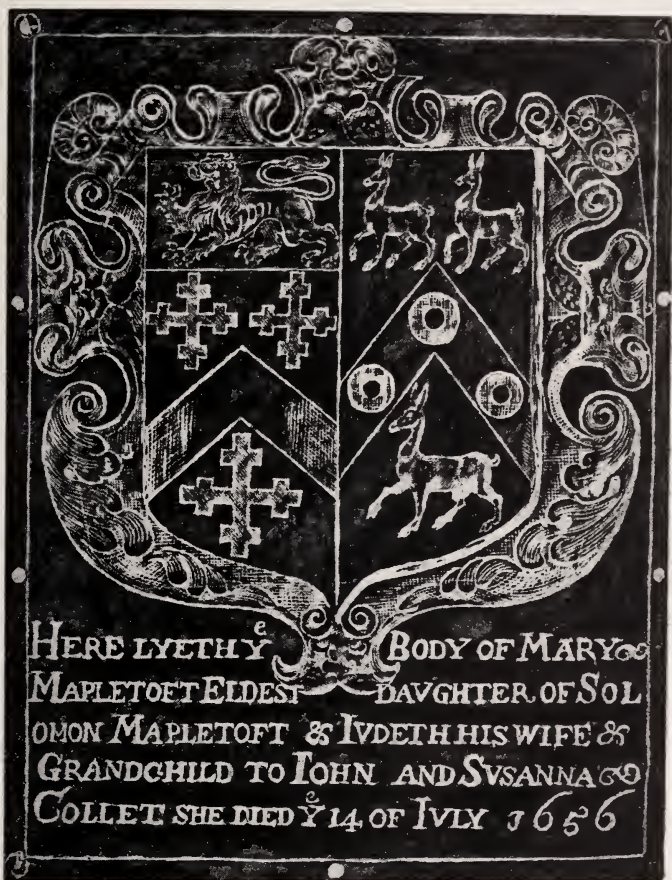 HERE LYETH Yᵉ BODY OF MARY
MAPLETOFT ELDEST DAVGHTER OF SOL
OMON MAPLETOFT & IVDETH HIS WIFE &
GRANDCHILD TO IOHN AND SVSANNA
COLLET SHE DIED Yᵉ 14 OF IVLY 1656